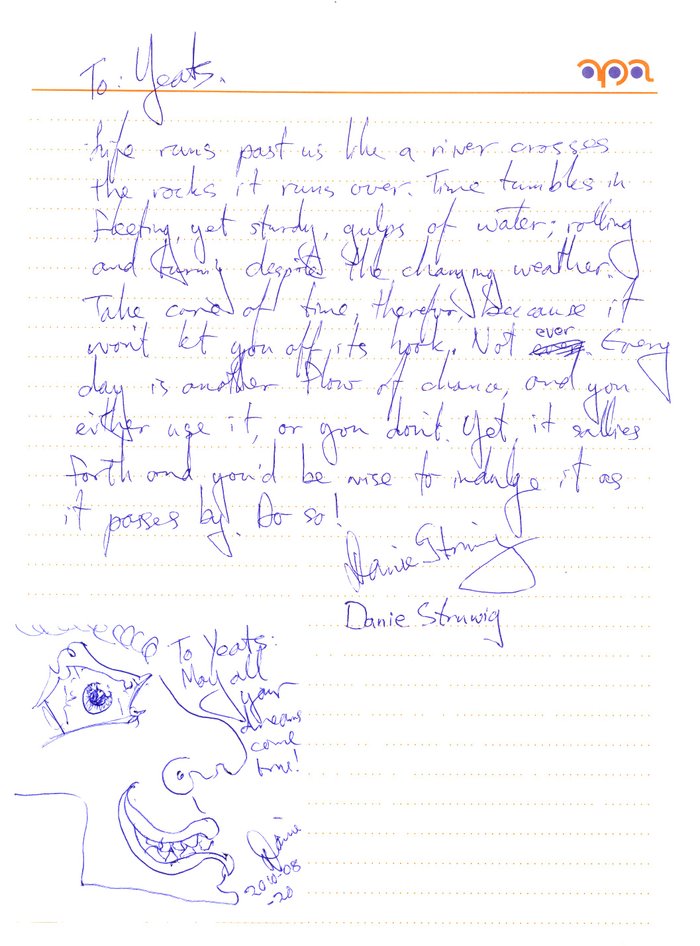 apa
To: Yeats.
Life runs past us like a river crosses
the rocks it runs over. Time tumbles in
fleeting, yet sturdy, gulps of water; rolling
and turning despite the changing weather.
Take care of time, therefore, because it
won't let you off its hook. Not ever. Every
day is another flow of chance, and you
either use it, or you don't. Yet, it sallies
forth and you'd be wise to indulge it as
it passes by. Do so!
Danie Struwig
Danie Struwig
To Yeats:
May all
your
dreams
come
true!
Danie
2010-08
-20